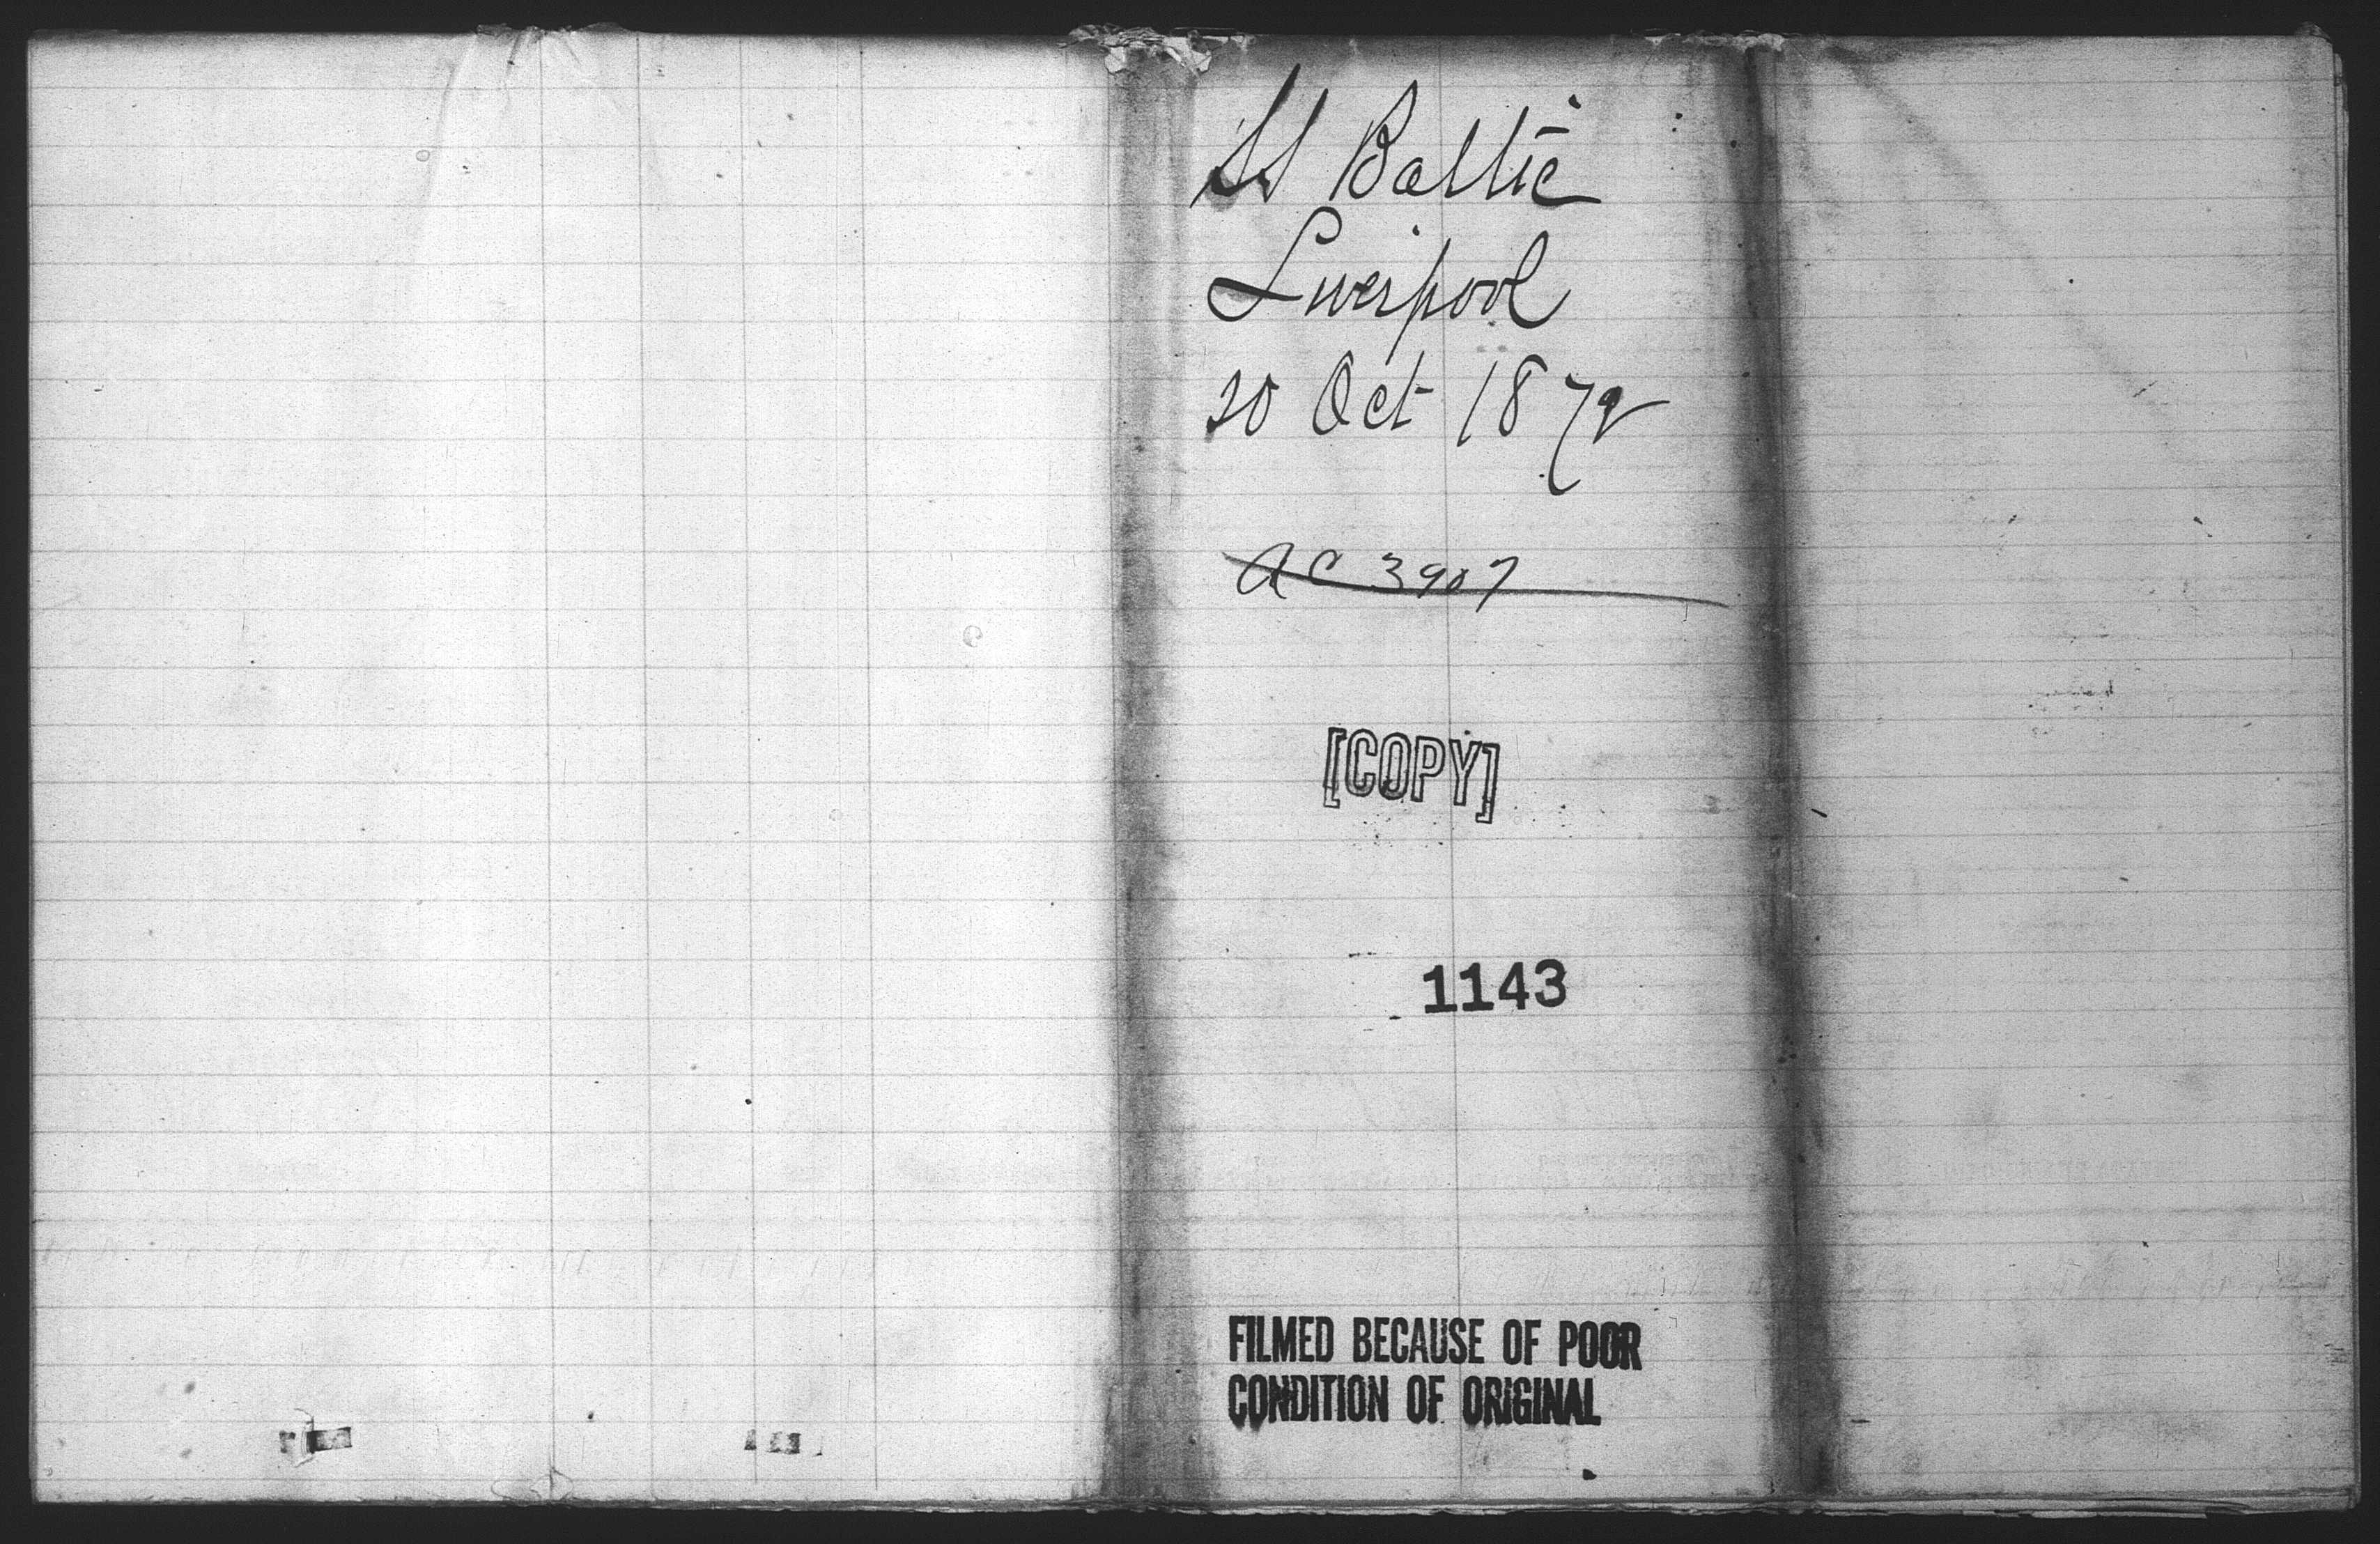 SS Baltic
Liverpool
20 Oct 1872
AC 3907
[COPY]
1143
FILMED BECAUSE OF POOR
CONDITION OF ORIGINAL